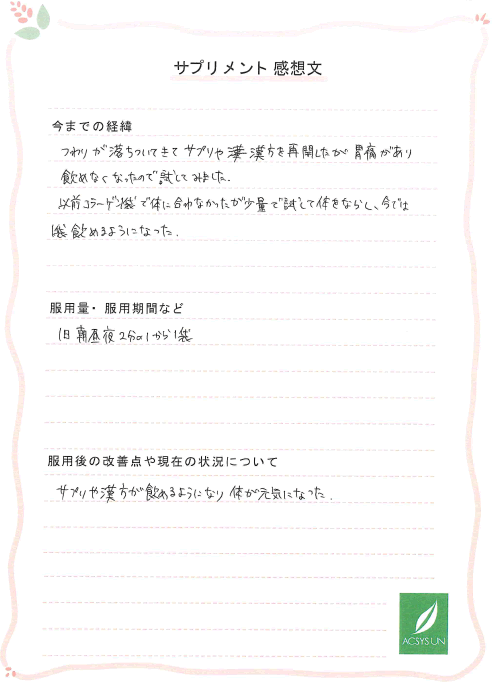 サプリメント 感想文
今までの経緯
つわりが落ちついてきて サプリや漢方を再開したが 胃痛があり
飲めなくなったので試してみました.
以前コラーゲン1袋で体に合わなかったが少量で試して体をならし、今では
1袋飲めるようになった.
服用量・服用期間など
1日 朝昼夜 2分の1から1袋
服用後の改善点や現在の状況について
サプリや漢方が飲めるようになり 体が元気になった.
ACSYSUN